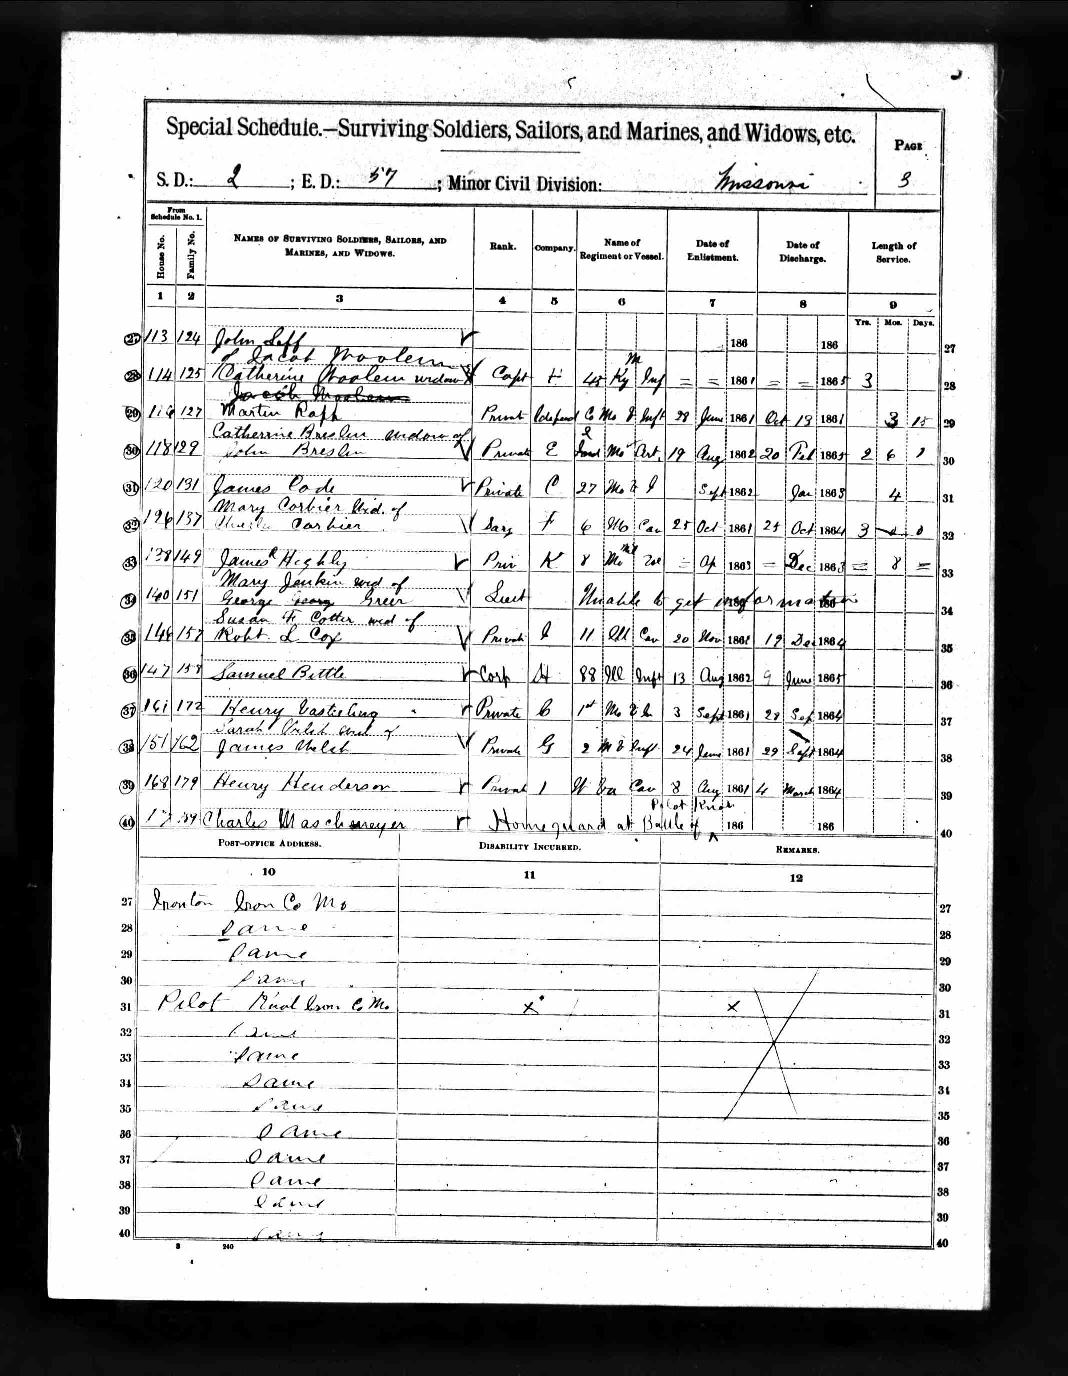 Special Schedule.—Surviving Soldiers, Sailors, and Marines, and Widows, etc.
PAGE
S. D.: 2 ; E. D.: 57 ; Minor Civil Division: Missouri 3
From Schedule No. 1.
House No. Family No. NAMES OF SURVIVING SOLDIERS, SAILORS, AND MARINES, AND WIDOWS. Rank. Company. Name of Regiment or Vessel. Date of Enlistment. Date of Discharge. Length of Service.
1 2 3 4 5 6 7 8 9
Yrs. Mos. Days.
27 113 124 John 186 186 27
of Jacob Woolem
28 114 125 Catherine Woolem widow Capt 45 Ky Inf = = 1861 = = 1865 3 28
Jacob Woolem
29 116 127 Martin Raph Private Co Mo Inft 28 June 1861 Oct 13 1861 3 15 29
Catherine Breslin widow of
30 118 129 John Breslin Private E Mo Art. 19 Aug 1862 20 Feb 1865 2 6 1 30
31 120 131 James Code Private C 27 Mo Sept 1862 Jan 1863 4 31
Mary Corbier Wid. of
32 196 137 Corbier Sarg F 6 Mo Cav 25 Oct 1861 25 Oct 1864 3 0 32
33 138 149 James R Highly Priv K 8 Mo = Ap 1863 = Dec 1863 = 8 = 33
Mary Jenkin wid of
34 140 151 George Greer Lieut Unable to get information 34
Susan F. Cotter wid of
35 146 157 Robt L Cox Private I 11 Ill Cav 20 Nov 1861 19 Dec 1864 35
36 147 158 Samuel Bettle Corp H 88 Ill Inft 13 Aug 1862 9 June 1865 36
37 161 172 Henry Private C 1st Mo 3 Sept 1861 28 Sep 1864 37
Sarah Welch wid of
38 151 162 James Welch Private G 2 Inft 24 June 1861 29 Sept 1864 38
39 168 179 Henry Henderson Privat 1 W Va Cav 8 Aug 1861 4 March 1864 39
Pilot Knob
40 Charles Maschmeyer Homeguard at Battle of 186 186 40
POST-OFFICE ADDRESS. DISABILITY INCURRED. REMARKS.
10 11 12
27 Ironton Iron Co Mo 27
28 Same 28
29 Same 29
30 Same 30
31 Pilot Knob Iron Co Mo x x 31
32 Same 32
33 Same 33
34 Same 34
35 Same 35
36 Same 36
37 Same 37
38 Same 38
39 Same 39
40 Same 40
3 240